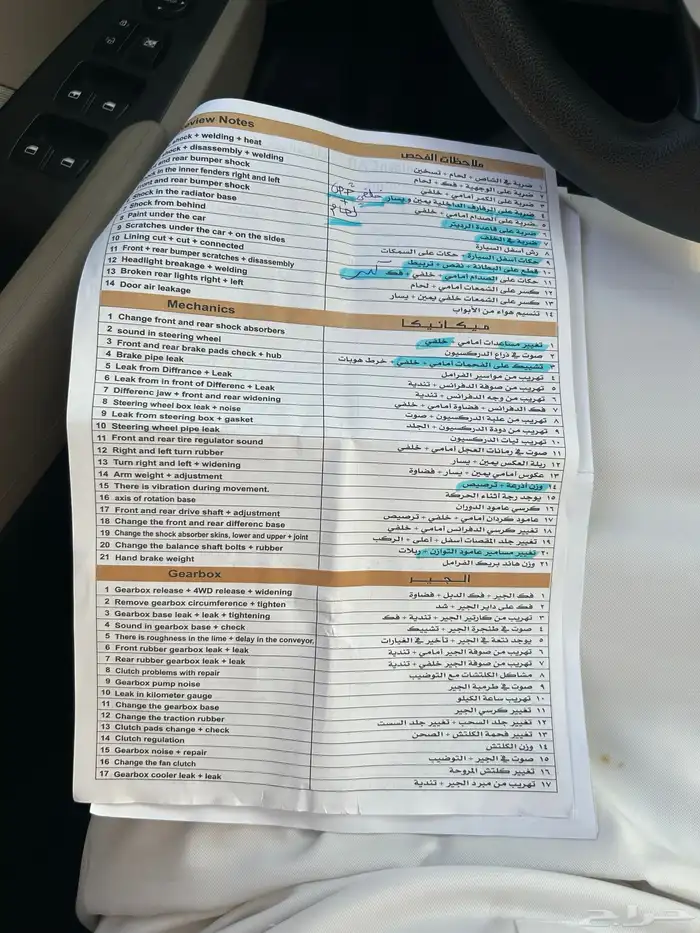 view Notes
ملاحظات الفحص
shock + welding + heat
ضربة في الشاص + لحام + تسخين
shock + disassembly + welding
٢ ضربة على الوجهية + فك + لحام
and rear bumper shock
٣ ضربة على الكمر أمامي + خلفي
in the inner fenders right and left
٤ ضربة على الرفارف الداخلية يمين و يسار
front and rear bumper shock
٥ ضربة على الصدام أمامي + خلفي
shock in the radiator base
٦ ضربة على قاعدة الرديتر
Shock from behind
٧ ضربة في الخلف
8 Paint under the car
٨ رش أسفل السيارة
9 Scratches under the car + on the sides
٩ حكات أسفل السيارة + حكات على السمكات
10 Lining cut + cut + connected
١٠ قطع على البطانة + نقص + تربيط
11 Front + rear bumper scratches + disassembly
١١ حكات على الصدام أمامي + خلفي + فك
12 Headlight breakage + welding
١٢ كسر على الشمعات أمامي + لحام
13 Broken rear lights right + left
١٣ كسر على الشمعات خلفي يمين + يسار
14 Door air leakage
١٤ تنسيم هواء من الأبواب
خلفي
لحام
Mechanics
ميكانيكا
1 Change front and rear shock absorbers
١ تغيير مساعدات أمامي + خلفي
2 sound in steering wheel
٢ صوت في ذراع الدركسيون
3 Front and rear brake pads check + hub
٣ تشييك على الفحمات أمامي + خلفي + خرط هوبات
4 Brake pipe leak
٤ تهريب من مواسير الفرامل
5 Leak from Diffrance + Leak
٥ تهريب من صوفة الدفرانس + تندية
6 Leak from in front of Differenc + Leak
٦ تهريب من وجه الدفرانس + تندية
7 Differenc jaw + front and rear widening
٧ فك الدفرانس + فضاوة أمامي + خلفي
8 Steering wheel box leak + noise
٨ تهريب من علبة الدركسيون + صوت
9 Leak from steering box + gasket
٩ تهريب من دودة الدركسيون + الجلد
10 Steering wheel pipe leak
١٠ تهريب ليات الدركسيون
11 Front and rear tire regulator sound
١١ صوت في رمانات العجل أمامي + خلفي
12 Right and left turn rubber
١٢ ربلة العكس يمين + يسار
13 Turn right and left + widening
١٣ عكوس أمامي يمين + يسار + فضاوة
14 Arm weight + adjustment
١٤ وزن أذرعة + ترصيص
15 There is vibration during movement.
١٥ يوجد رجة أثناء الحركة
16 axis of rotation base
١٦ كرسي عامود الدوران
17 Front and rear drive shaft + adjustment
١٧ عامود كردان أمامي + خلفي + ترصيص
18 Change the front and rear differenc base
١٨ تغيير كرسي الدفرانس أمامي + خلفي
19 Change the shock absorber skins, lower and upper + joint
١٩ تغيير جلد المقصات أسفل + أعلى + الركب
20 Change the balance shaft bolts + rubber
٢٠ تغيير مسامير عامود التوازن + ربلات
21 Hand brake weight
٢١ وزن هاند بريك الفرامل
Gearbox
الجير
1 Gearbox release + 4WD release + widening
١ فك الجير + فك الدبل + فضاوة
2 Remove gearbox circumference + tighten
٢ فك على داير الجير + شد
3 Gearbox base leak + leak + tightening
٣ تهريب من كارتير الجير + تندية + فك
4 Sound in gearbox base + check
٤ صوت في طنجرة الجير + تشييك
5 There is roughness in the lime + delay in the conveyor.
٥ يوجد نتعة في الجير + تأخير في الغيارات
6 Front rubber gearbox leak + leak
٦ تهريب من صوفة الجير أمامي + تندية
7 Rear rubber gearbox leak + leak
٧ تهريب من صوفة الجير خلفي + تندية
8 Clutch problems with repair
٨ مشاكل الكلتشات مع التوضيب
9 Gearbox pump noise
٩ صوت في طرمبة الجير
10 Leak in kilometer gauge
١٠ تهريب ساعة الكيلو
11 Change the gearbox base
١١ تغيير كرسي الجير
12 Change the traction rubber
١٢ تغيير جلد السحب + تغيير جلد السست
13 Clutch pads change + check
١٣ تغيير فحمة الكلتش + الصحن
14 Clutch regulation
١٤ وزن الكلتش
15 Gearbox noise + repair
١٥ صوت في الجير + التوضيب
16 Change the fan clutch
١٦ تغيير كلتش المروحة
17 Gearbox cooler leak + leak
١٧ تهريب من مبرد الجير + تندية
حراج